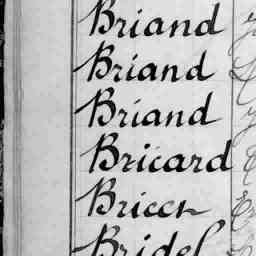 Briand
Briand
Briand
Bricard
Briccn
Bridel